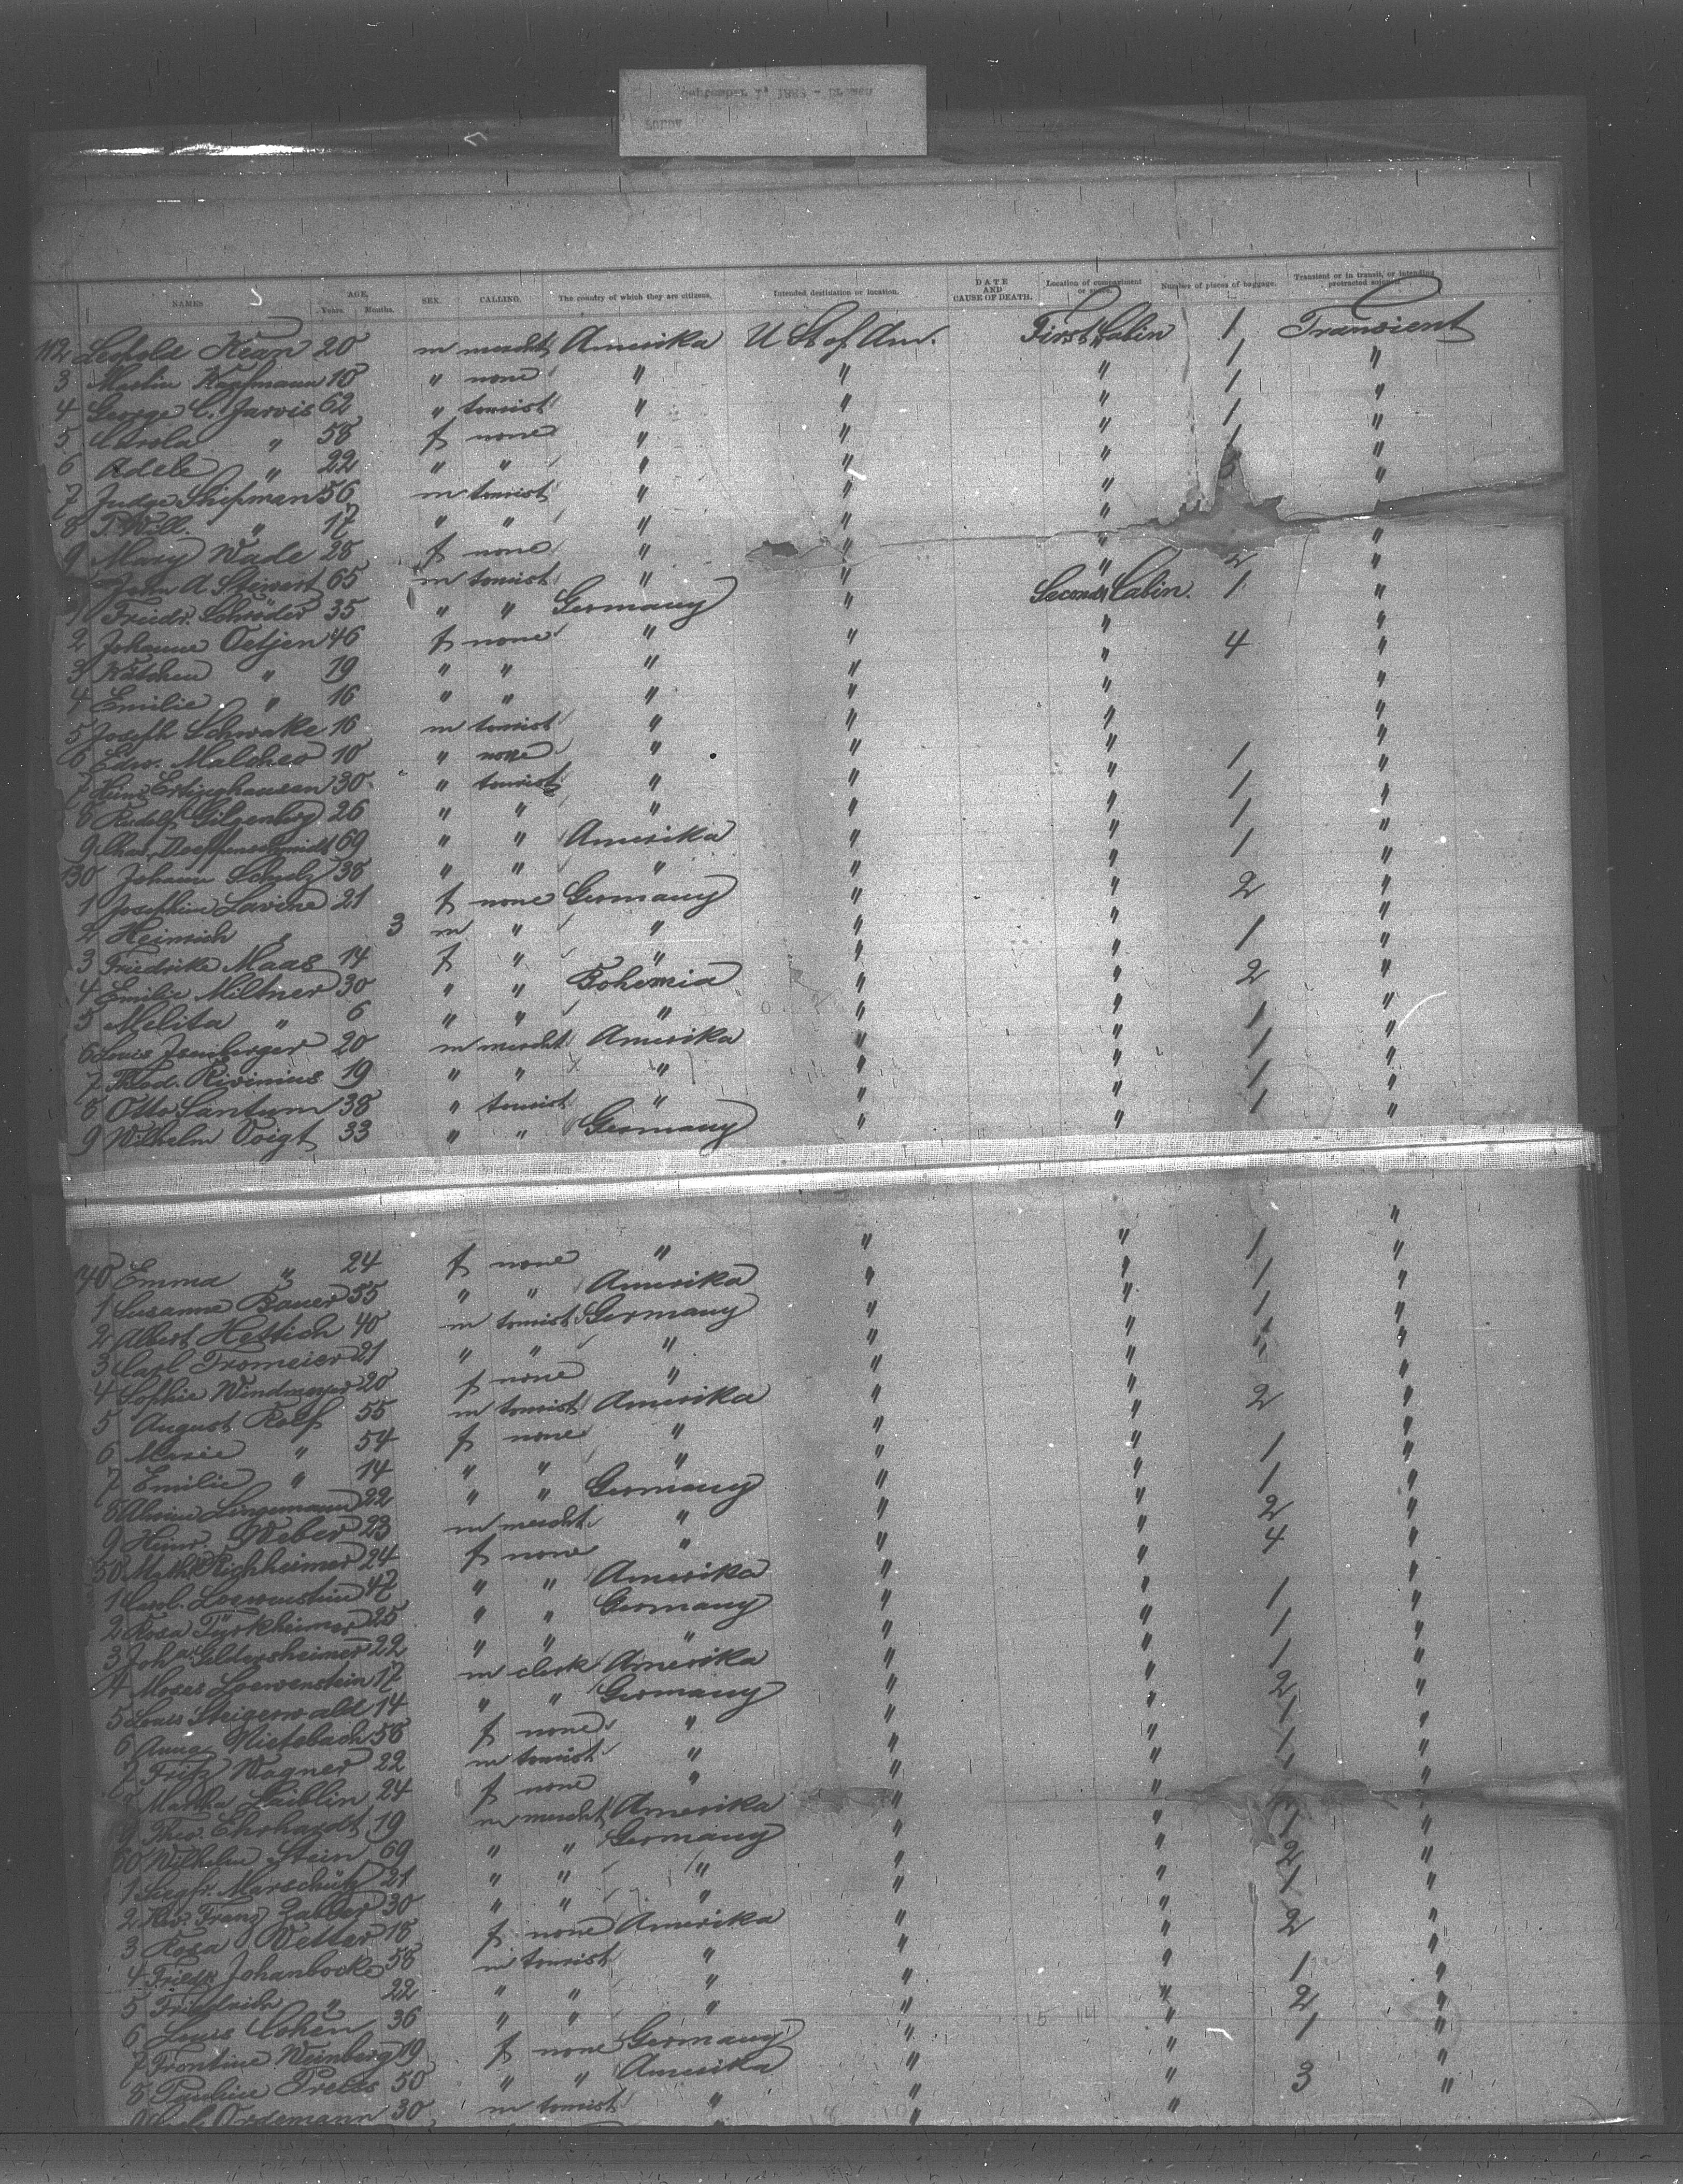 NAMES AGE, Years. Months. SEX. CALLING. The country of which they are citizens. Intended destination or location. DATE AND CAUSE OF DEATH. Location of compartment or space. Number of pieces of baggage. Transient or in transit, or intending protracted sojourn.
112 Leopold Kean 20 m mercht Amerika U St of Am. First Cabin 1 Transient
3 Martin Kaufmann 10 " none " " " 1 "
4 George C. Jarvis 62 " tourist " " " 1 "
5 Carola " 58 f none " " " 1 "
6 Adele " 22 " " " " " 1 "
7 Judge Shipman 56 m tourist " " " "
8 T. Will. " 17 " " " " " "
9 Mary Wade 28 f none " " " "
John A Stewart 65 m tourist " " " 2 "
1 Friedr. Schröder 35 " " Germany " Second Cabin. 1 "
2 Johanne Oetjen 46 f none " " " 4 "
3 Kätchen " 19 " " " " " "
4 Emilie " 16 " " " " " "
5 Joseph Schwake 16 m tourist " " " "
6 Edw. Malcheo 10 " none " " " 1 "
7 Heinr. Ertinghausen 30 " tourist " " " 1 "
8 Rudolf Gilzenberg 26 " " " " " 1 "
9 69 " " Amerika " " 1 "
130 Johann Schulz 38 " " " " " "
1 Josephine Lavine 21 f none Germany " " 2 "
2 Heinrich " 3 m " " " " "
3 Friedrike Maas 14 f " " " " 1 "
4 Emilie Miltner 30 " " Bohemia " " 2 "
5 Melita " 6 " " " " " "
6 Louis Isenberger 20 m mercht Amerika " " 1 "
7 Theod. Rivinius 19 " " " " " 1 "
8 Otto Santum 38 " tourist " " " 1 "
9 Wilhelm Voigt 33 " " Germany " " 1 "
40 Emma " 24 f none " " " "
1 Susanne Bauer 55 " " Amerika " " 1 "
2 Albert Hettich 40 m tourist Germany " " 1 "
3 Carl Tromeier 21 " " " " " 1 "
4 Sophie Windmeyer 20 f none " " " "
5 August Roef 55 m tourist Amerika " " 2 "
6 Marie " 54 f none " " " "
7 Emilie " 14 " " " " " "
8 Alwine Lingemann 22 " " Germany " " 1 "
9 Heinr. Weber 23 m mercht " " " 1 "
50 Math. Richheimer 24 f none " " " 2 "
1 Carol. Loewenstein 47 " " Amerika " " 4 "
2 Rosa Türkheimer 25 " " Germany " " "
3 Joha. Geldersheimer 22 " " " " " 1 "
4 Moses Loewenstein 17 m clerk Amerika " " 1 "
5 Louis Steigerwald 14 " " Germany " " 1 "
6 Anna Mistelbach 58 f none " " " 2 "
7 Fritz Wagner 22 m tourist " " " 1 "
8 Martha Laiblin 24 f none " " " 1 "
9 Theo. Ehrhardt 19 m mercht Amerika " " 1 "
60 Wilhelm Stein 69 " " Germany " " "
1 Siegfr. Marschütz 21 " " " " " 1 "
2 Rev. Franz Zalder 30 " " " " " 2 "
3 Rosa Vetter 18 f none Amerika " " 1 "
4 Friedr. Johanbocke 58 m tourist " " " 2 "
5 Friedrich " 22 " " " " " "
6 Louis Cohen 36 " " " " " 1 "
7 Weinberg 19 f none Germany " " 2 "
8 Pauline Preiss 50 " " Amerika " " 1 "
Ordemann 30 m tourist " " " 3 "